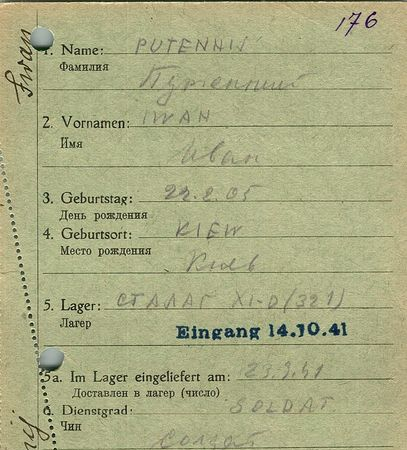 176
Iwan
1. Name: PUTENNIJ
Фамилия
Путенний
2. Vornamen: IWAN
Имя
Иван
3. Geburtstag: 22.2.05
День рождения
4. Geburtsort: KIEW
Место рождения
Киев
5. Lager: СТАЛАГ XI-D (321)
Лагер
Eingang 14.10.41
5a. Im Lager eingeliefert am: 23.9.41
Доставлен в лагер (число)
6. Dienstgrad: SOLDAT
Чин
Солдат